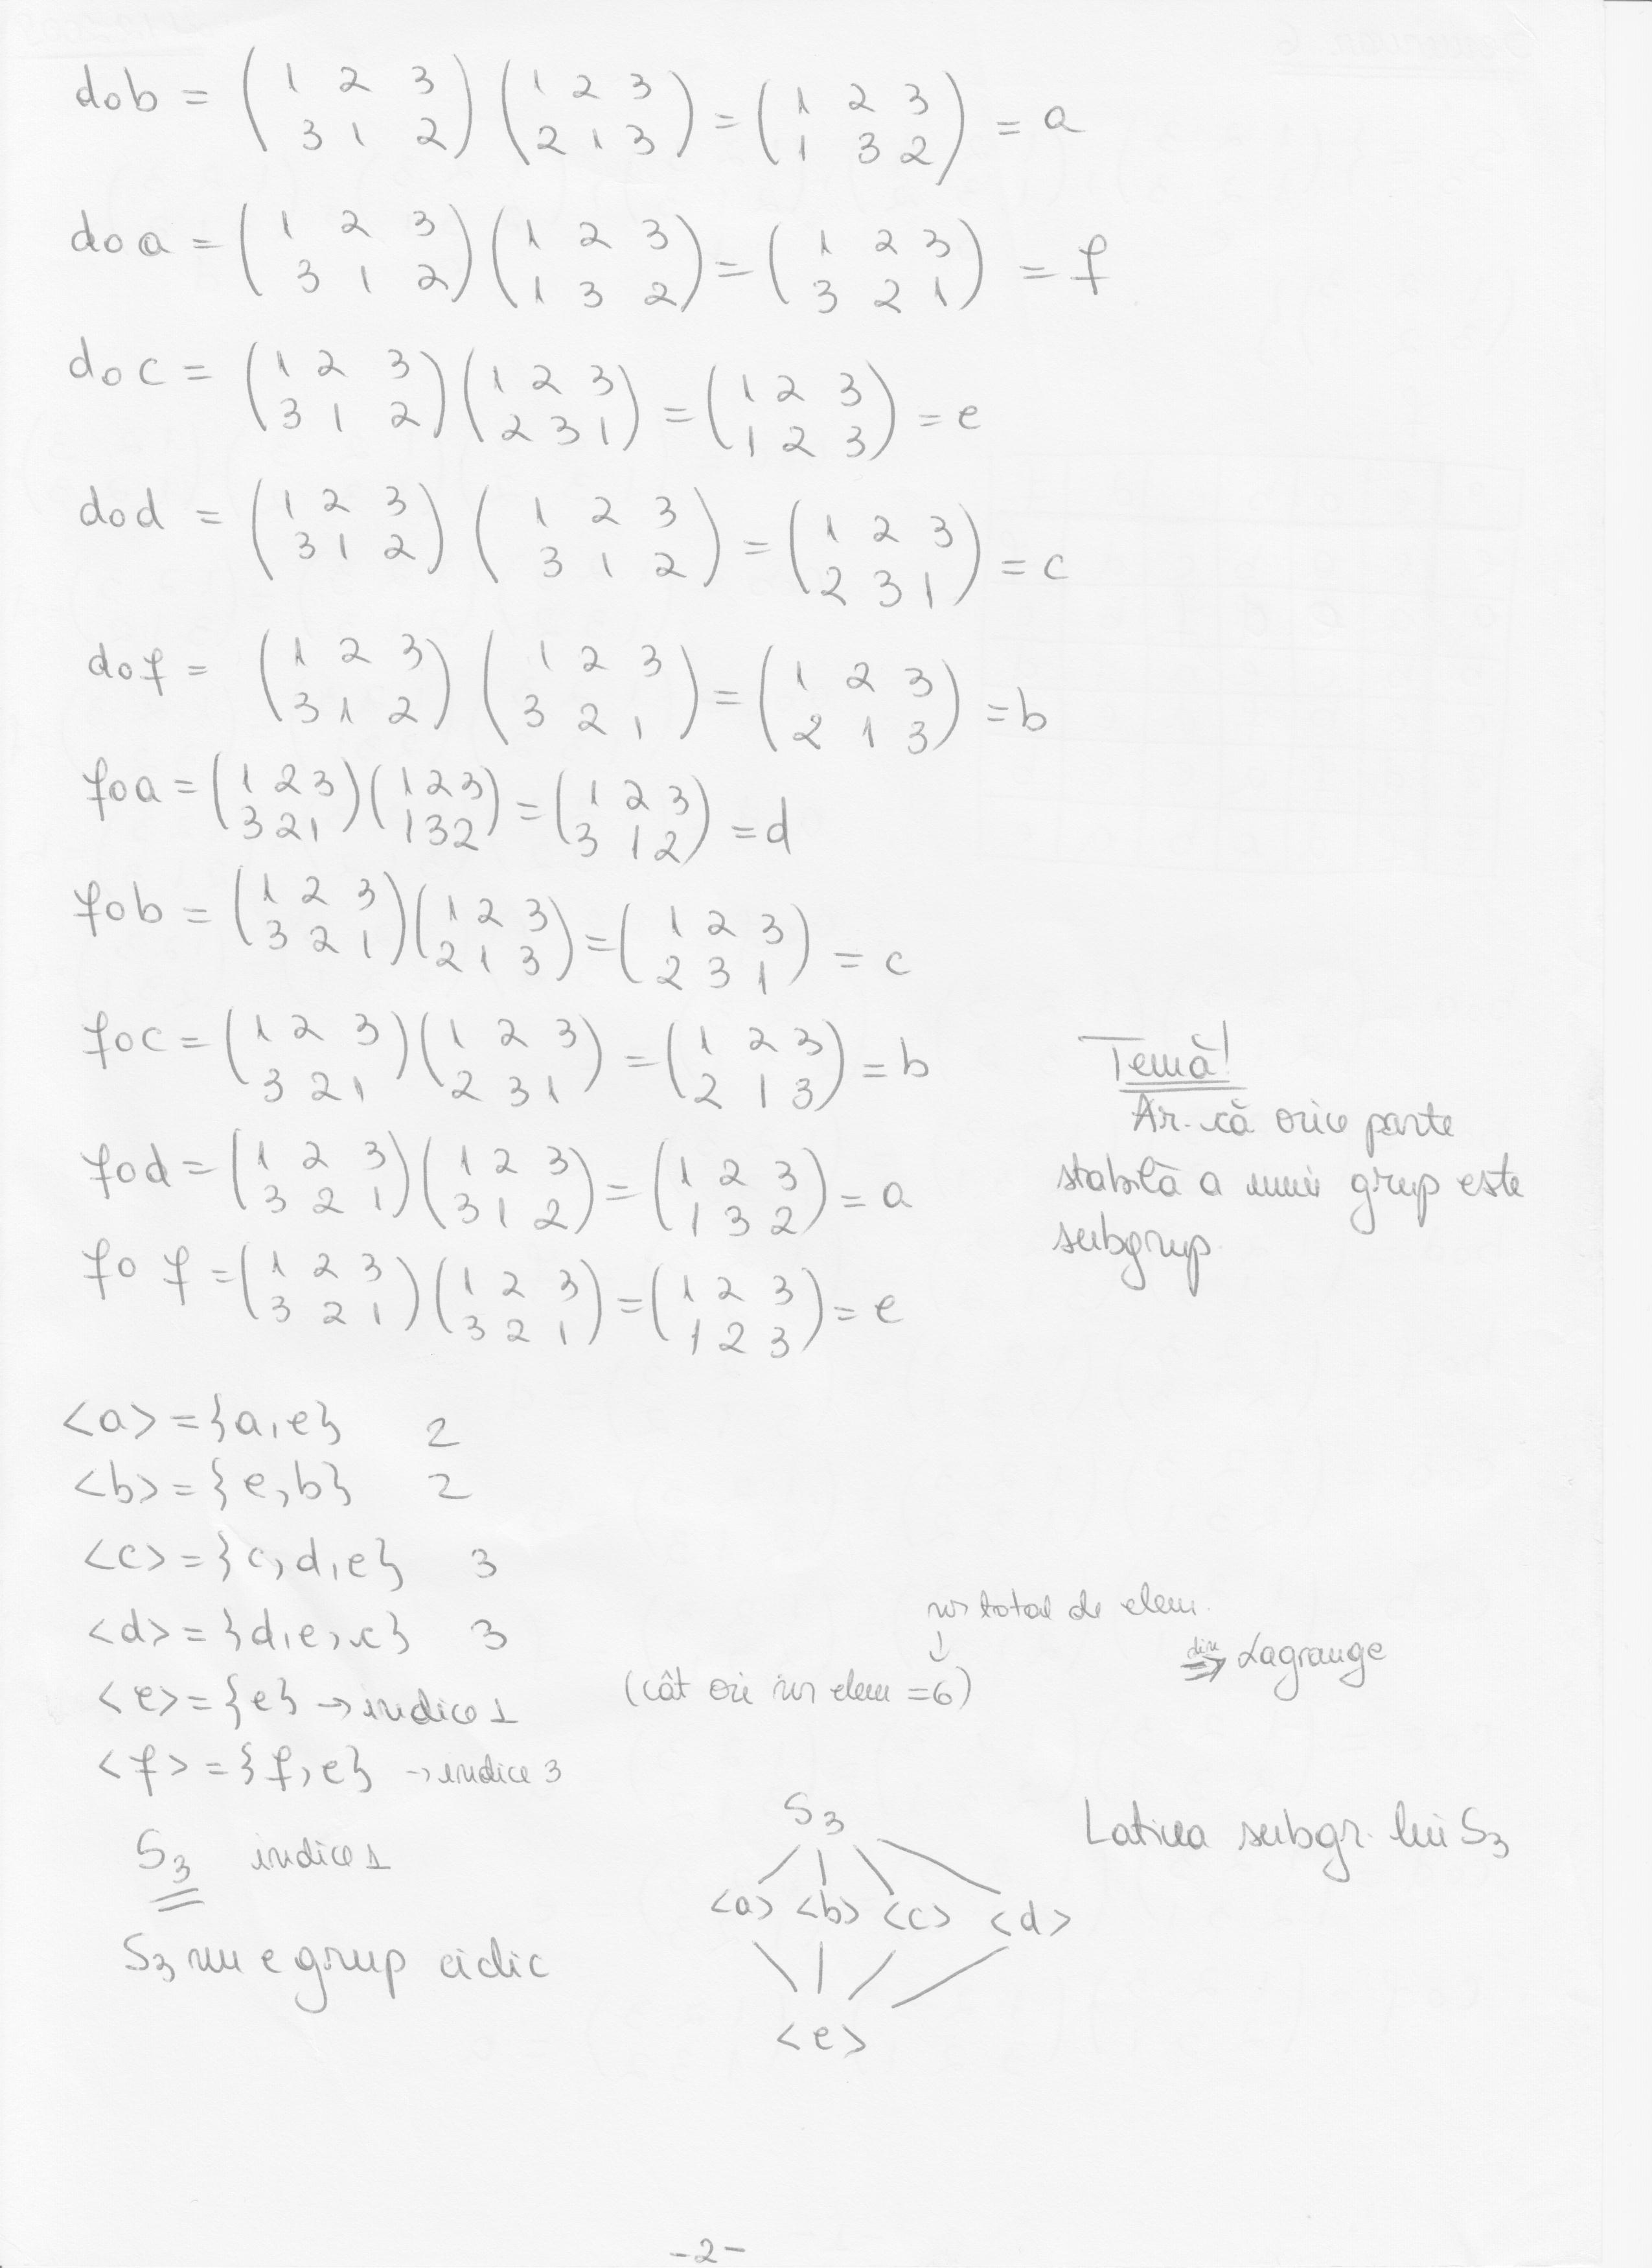 d∘b = (1 2 3 / 3 1 2) (1 2 3 / 2 1 3) = (1 2 3 / 1 3 2) = a
d∘a = (1 2 3 / 3 1 2) (1 2 3 / 1 3 2) = (1 2 3 / 3 2 1) = f
d∘c = (1 2 3 / 3 1 2) (1 2 3 / 2 3 1) = (1 2 3 / 1 2 3) = e
d∘d = (1 2 3 / 3 1 2) (1 2 3 / 3 1 2) = (1 2 3 / 2 3 1) = c
d∘f = (1 2 3 / 3 1 2) (1 2 3 / 3 2 1) = (1 2 3 / 2 1 3) = b
f∘a = (1 2 3 / 3 2 1) (1 2 3 / 1 3 2) = (1 2 3 / 3 1 2) = d
f∘b = (1 2 3 / 3 2 1) (1 2 3 / 2 1 3) = (1 2 3 / 2 3 1) = c
f∘c = (1 2 3 / 3 2 1) (1 2 3 / 2 3 1) = (1 2 3 / 2 1 3) = b
f∘d = (1 2 3 / 3 2 1) (1 2 3 / 3 1 2) = (1 2 3 / 1 3 2) = a
f∘f = (1 2 3 / 3 2 1) (1 2 3 / 3 2 1) = (1 2 3 / 1 2 3) = e
Temă!
Ar. că orice parte
stabilă a unui grup este
subgrup.
<a> = {a, e} 2
<b> = {e, b} 2
<c> = {c, d, e} 3
<d> = {d, e, c} 3
<e> = {e} → indice 1
<f> = {f, e} → indice 3
nr total de elem.
↓
(cât ori nr elem = 6)
din ⇒ Lagrange
S₃ indice 1
S₃ nu e grup ciclic
S₃
<a> <b> <c> <d>
<e>
Laticea subgr. lui S₃
-2-